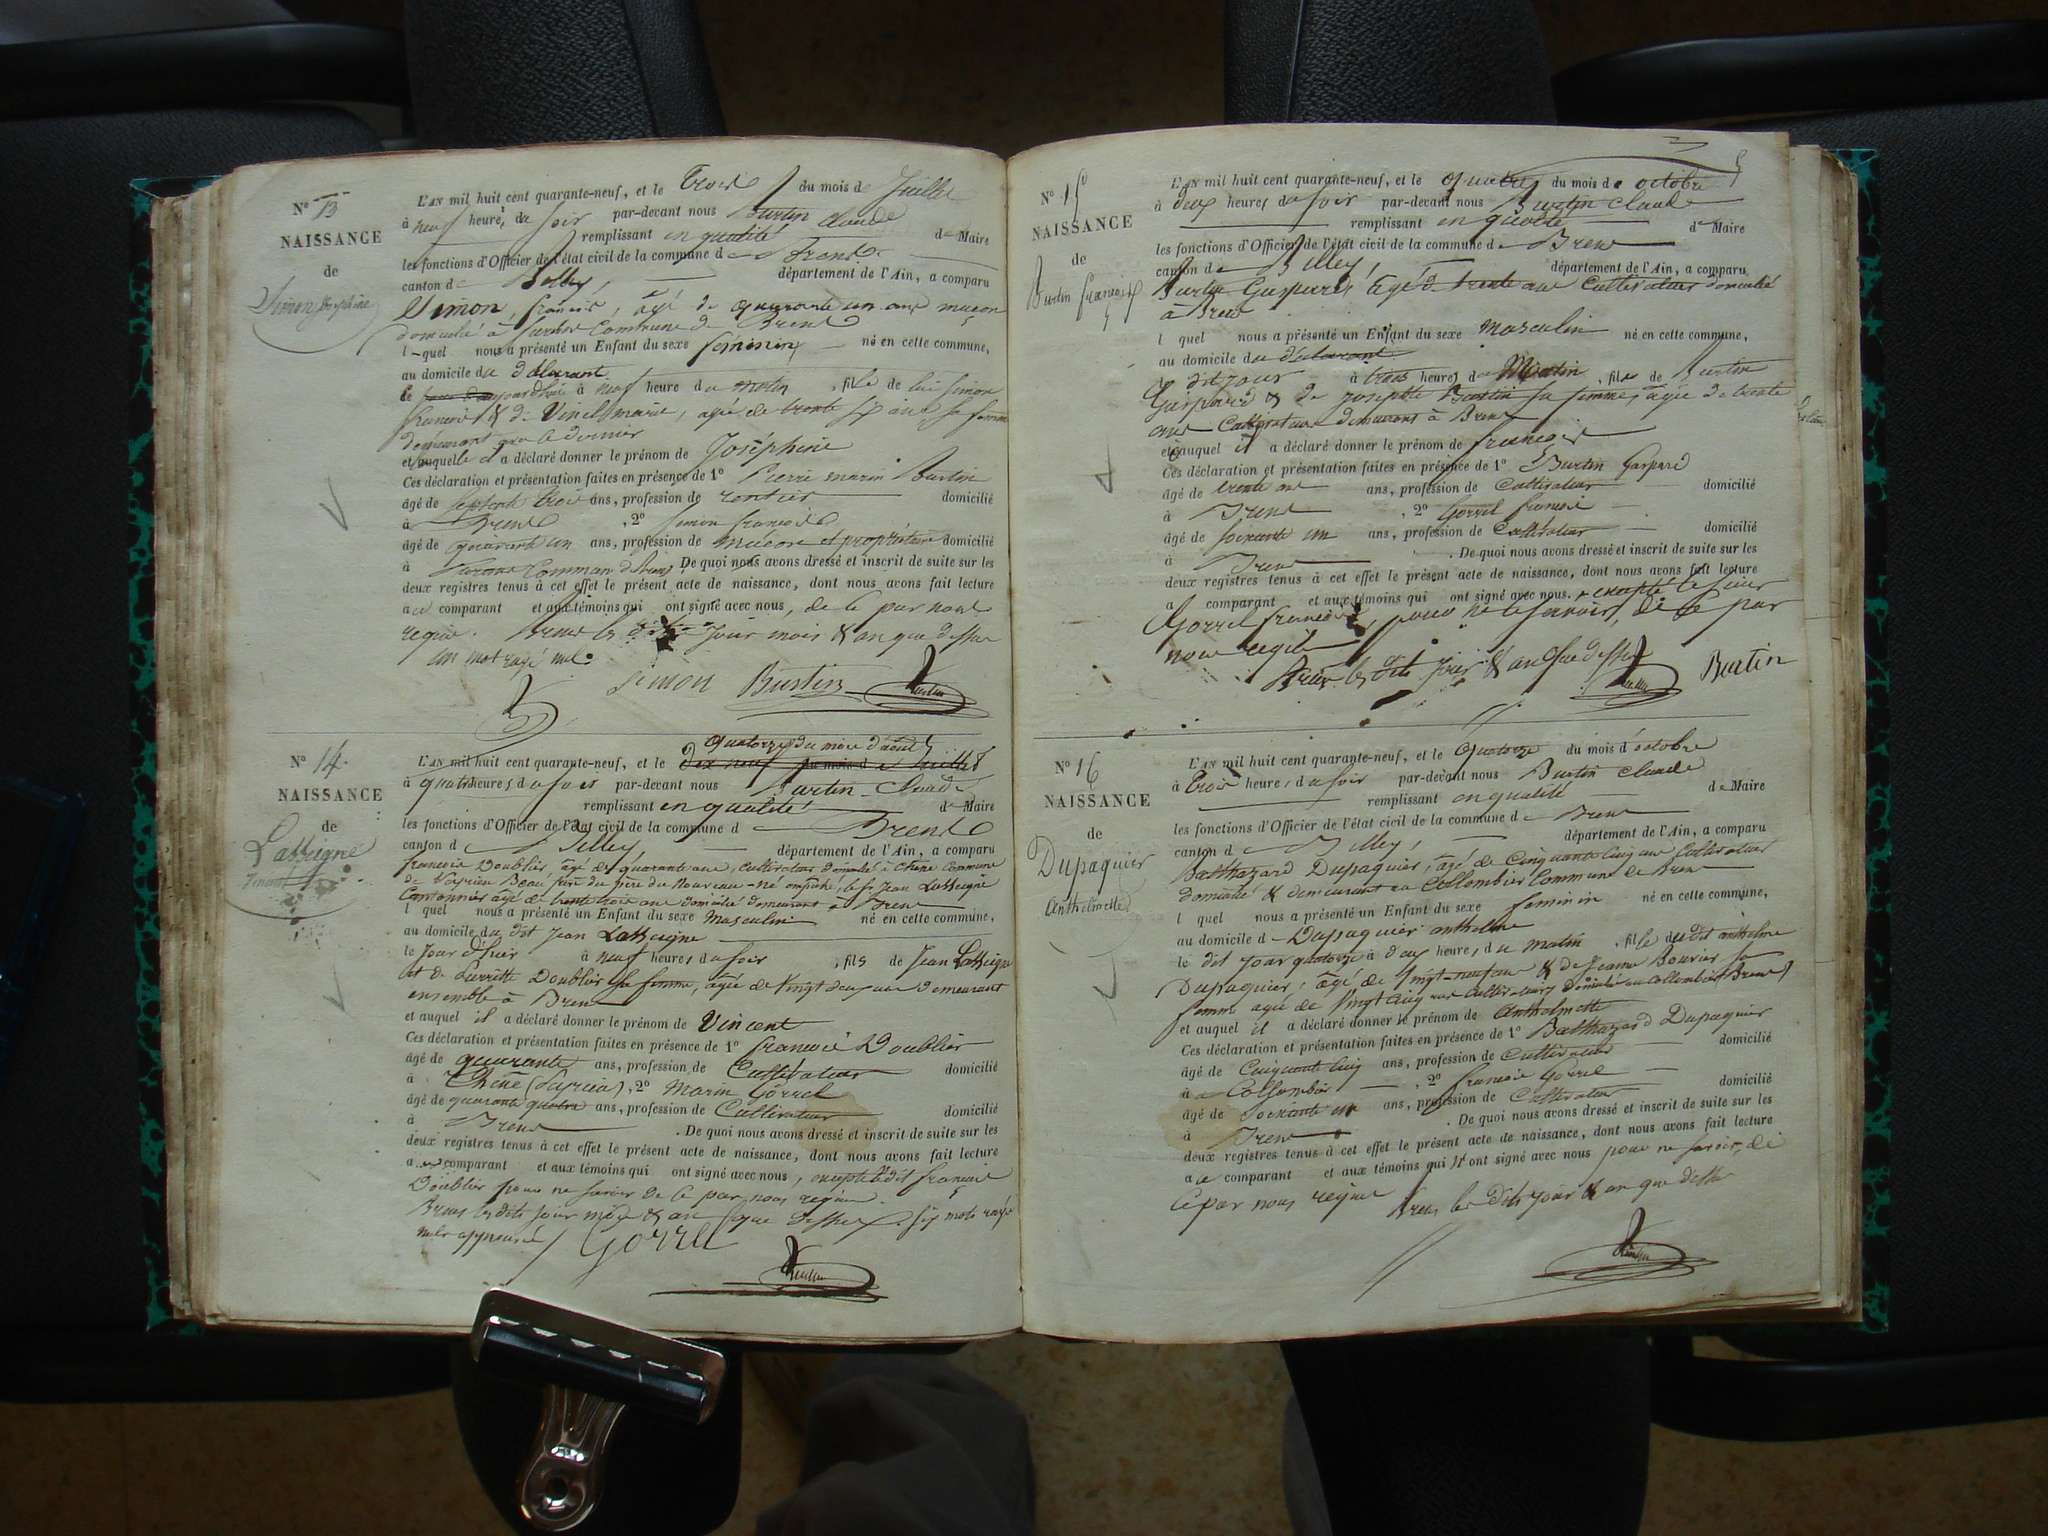 N° 13
NAISSANCE
de
Simon Joséphine
L'AN mil huit cent quarante-neuf, et le trois du mois de Juillet
à neuf heures du soir par-devant nous Burtin Claude
remplissant en qualité de Maire
les fonctions d'Officier de l'état civil de la commune d Brens
canton d Belley, département de l'Ain, a comparu
Simon, françois, agé de quarante un ans maçon
domicilié à commune de Brens
l quel nous a présenté un Enfant du sexe feminin né en cette commune,
au domicile du déclarant
le aujourd'hui à neuf heure du matin, fille de lui Simon
françois & de Vinel marie, agée de trente six ans sa femme
demeurant avec le dernier
et a laquelle il a déclaré donner le prénom de Joséphine
Ces déclaration et présentation faites en présence de 1° Pierre marin Burtin
âgé de septente trois ans, profession de rentier domicilié
à Brens, 2° Simon françois
âgé de quarante un ans, profession de macon et propriétaire domicilié
à commune de Brens. De quoi nous avons dressé et inscrit de suite sur les
deux registres tenus à cet effet le présent acte de naissance, dont nous avons fait lecture
au comparant et aux témoins qui ont signé avec nous, de ce par nous
requis. Brens les dits jour mois & an que dessus
un mot rayé nul.
Simon Burtin Burtin
N° 14
NAISSANCE
de
Lasseigne
Vincent
quatorze du mois d'août
L'AN mil huit cent quarante-neuf, et le dix neuf du mois de Juillet
à quatre heures du soir par-devant nous Burtin Claude
remplissant en qualité de Maire
les fonctions d'Officier de l'état civil de la commune d Brens
canton d Belley, département de l'Ain, a comparu
françois Doublier, âgé de quarante ans, cultivateur domicilié à Chêne commune
de Beau frère du père du nouveau-né le sr Jean Lasseigne
Cantonnier agé de trente trois ans domicilié demeurant à Brens
l quel nous a présenté un Enfant du sexe Masculin né en cette commune,
au domicile du dit Jean Lasseigne
le jour d'hier à neuf heures du soir, fils de Jean Lasseigne
et de Pierrette Doublier sa femme, agée de vingt deux ans demeurant
ensemble à Brens
et auquel il a déclaré donner le prénom de Vincent
Ces déclaration et présentation faites en présence de 1° françois Doublier
âgé de quarante ans, profession de Cultivateur domicilié
à Chêne, 2° Marin Gorrel
âgé de quarante quatre ans, profession de Cultivateur domicilié
à Brens. De quoi nous avons dressé et inscrit de suite sur les
deux registres tenus à cet effet le présent acte de naissance, dont nous avons fait lecture
au comparant et aux témoins qui ont signé avec nous, excepté le dit françois
Doublier pour ne savoir de ce par nous requis.
Brens les dits jour mois & an que dessus. six mots rayés
nuls approuvés
Gorrel Burtin
N° 15
NAISSANCE
de
Burtin françois
L'AN mil huit cent quarante-neuf, et le quatre du mois de octobre
à deux heures du soir par-devant nous Burtin Claude
remplissant en qualité de Maire
les fonctions d'Officier de l'état civil de la commune d Brens
canton d Belley, département de l'Ain, a comparu
Burtin Gaspard âgé de trente ans Cultivateur domicilié
à Brens
l quel nous a présenté un Enfant du sexe masculin né en cette commune,
au domicile du déclarant
le dit jour à trois heures du Matin, fils de Burtin
Gaspard & de Josephte Burtin sa femme, agée de trente
ans Cultivateurs demeurant à Brens
et auquel il a déclaré donner le prénom de françois
Ces déclaration et présentation faites en présence de 1° Burtin Gaspard
âgé de trente ans, profession de Cultivateur domicilié
à Brens, 2° Gorrel francois
âgé de soixante un ans, profession de Cultivateur domicilié
à Brens. De quoi nous avons dressé et inscrit de suite sur les
deux registres tenus à cet effet le présent acte de naissance, dont nous avons fait lecture
a comparant et aux témoins qui ont signé avec nous, excepté le sieur
Gorrel francois, pour ne le savoir, de ce par
nous requis
Brens les dits jour & an que dessus
Burtin Burtin
N° 16
NAISSANCE
de
Dupaquier
Anthelmette
L'AN mil huit cent quarante-neuf, et le quatorze du mois d'octobre
à trois heures du soir par-devant nous Burtin Claude
remplissant en qualité de Maire
les fonctions d'Officier de l'état civil de la commune d Brens
canton d Belley, département de l'Ain, a comparu
Balthazard Dupaquier, âgé de cinquante cinq ans Cultivateur
domicilié & demeurant au Collombier Commune de Brens
l quel nous a présenté un Enfant du sexe feminin né en cette commune,
au domicile d Dupaquier anthelme
le dit jour quatorze à deux heures du matin, fille dudit anthelme
Dupaquier, âgé de vingt-neuf ans & de Jeanne Bouvier sa
femme agée de vingt cinq ans cultivateurs domiciliés au Collombier (Brens)
et auquel il a déclaré donner le prénom de Anthelmette
Ces déclaration et présentation faites en présence de 1° Balthazard Dupaquier
âgé de Cinquante cinq ans, profession de Cultivateur domicilié
à Collombier, 2° françois Gorrel
âgé de soixante un ans, profession de Cultivateur domicilié
à Brens. De quoi nous avons dressé et inscrit de suite sur les
deux registres tenus à cet effet le présent acte de naissance, dont nous avons fait lecture
au comparant et aux témoins qui n'ont signé avec nous pour ne savoir, de
ce par nous requis Brens les dits jour & an que dessus
Burtin